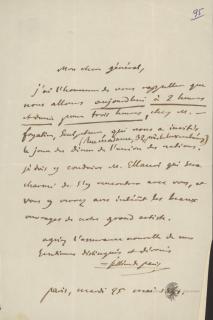 95
Mon cher général,
j'ai l'honneur de vous rappeller que
nous allons aujourd'hui à 2 heures
et demie pour trois heures, chez M.
foyatier, sculpteur, qui nous a invités,
le jour du dîner de l'union des nations.
je dois y conduire M. Ellauri qui sera
charmé de s'y rencontrer avec vous, et
vous y verrez avec intérêt les beaux
ouvrages de notre grand artiste.
agréez l'assurance nouvelle de mes
sentimens distingués et dévoués
Jullien de paris
paris, mardi 25 mai